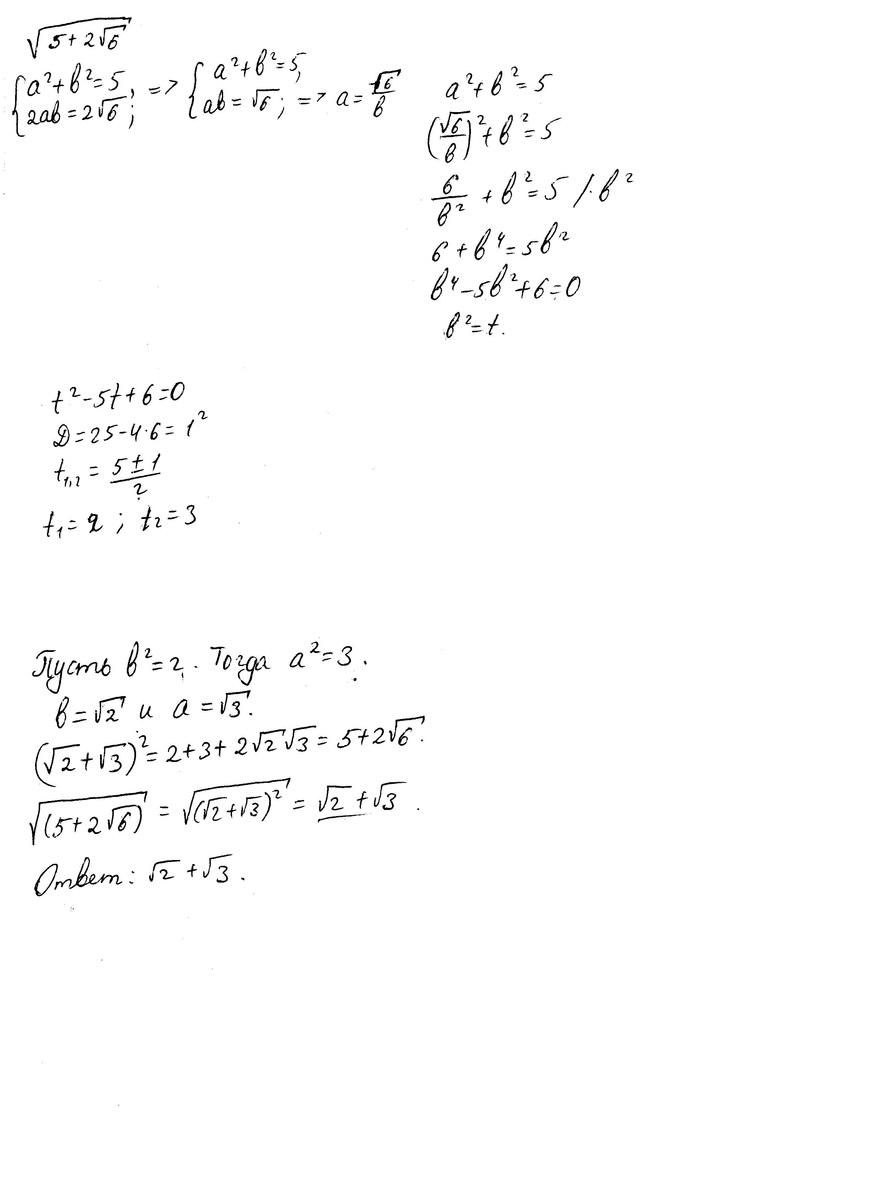 √(5+2√6)
{a²+b²=5, 2ab=2√6; => {a²+b²=5, ab=√6; => a=√6/b
a²+b²=5
(√6/b)²+b²=5
6/b²+b²=5 /·b²
6+b⁴=5b²
b⁴-5b²+6=0
b²=t.
t²-5t+6=0
D=25-4·6=1²
t₁,₂=(5±1)/2
t₁=2; t₂=3
Пусть b²=2. Тогда a²=3.
b=√2 и a=√3.
(√2+√3)²=2+3+2√2√3=5+2√6.
√(5+2√6)=√((√2+√3)²)=√2+√3.
Ответ: √2+√3.